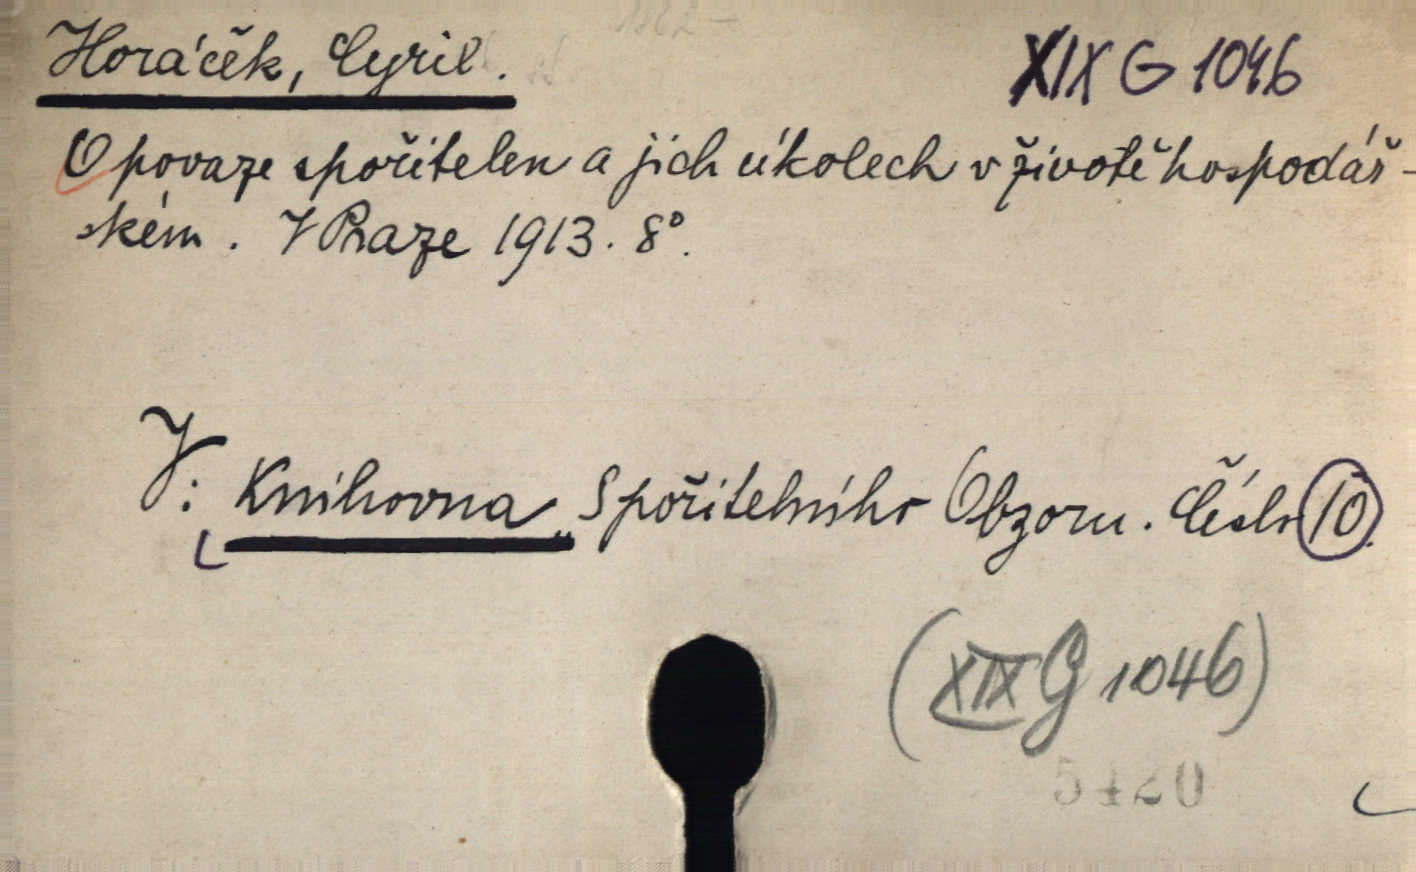 Horáček, Cyril.
XIX G 1046
O povaze spořitelen a jich úkolech v životě hospodář-
ském. V Praze 1913. 8°.
V: Knihovna Spořitelního Obzoru. Číslo 10.
(XIX G 1046)
5420